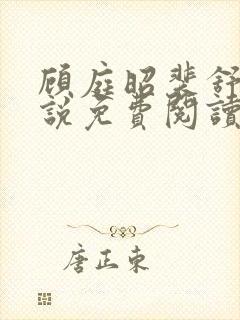 顾庭昭裴舒
説免費閱讀
唐正東